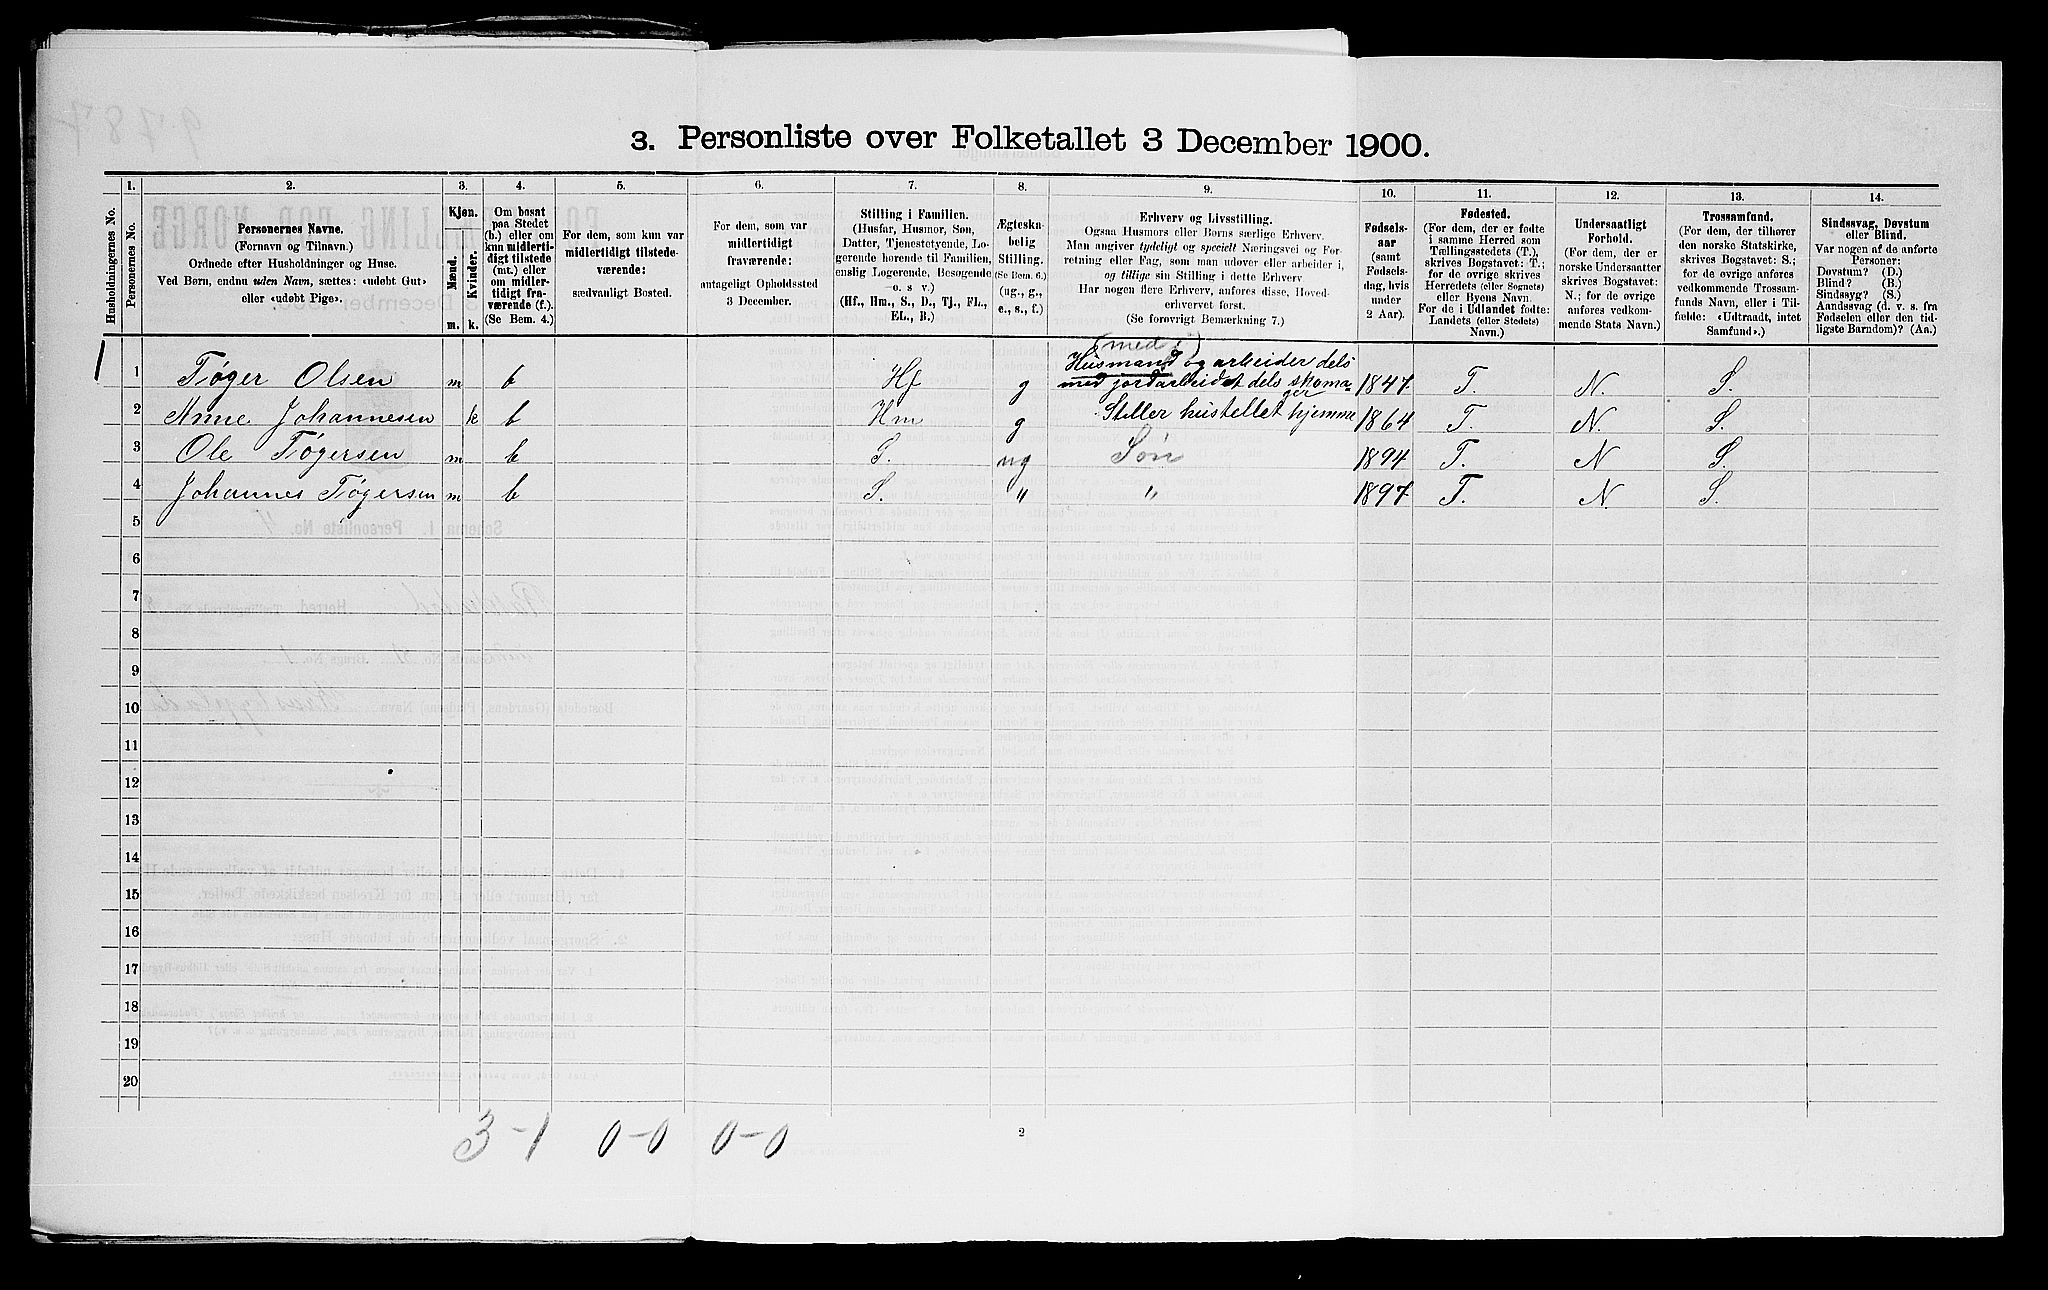 3. Personliste over Folketallet 3 December 1900.
Husholdningernes No.
1.
Personernes No.
2.
Personernes Navne.
(Fornavn og Tilnavn.)
Ordnede efter Husholdninger og Huse.
Ved Børn, endnu uden Navn, sættes: «udøbt Gut»
eller «udøbt Pige».
3.
Kjøn.
Mænd.
Kvinder.
m.
k.
4.
Om bosat
paa Stedet
(b.) eller om
kun midlerti-
digt tilstede
(mt.) eller
om midler-
tidigt fra-
værende (f.).
(Se Bem. 4.)
5.
For dem, som kun var
midlertidigt tilstede-
værende:
sædvanligt Bosted.
6.
For dem, som var
midlertidigt
fraværende:
antageligt Opholdssted
3 December.
7.
Stilling i Familien.
(Husfar, Husmor, Søn,
Datter, Tjenestetyende, Lo-
gerende hørende til Familien,
enslig Logerende, Besøgende
o. s v.)
(Hf., Hm., S., D., Tj., FL.,
EL., B.)
8.
Ægteska-
belig
Stilling.
(Se Bem. 6.)
(ug., g.,
e., s., f.)
9.
Erhverv og Livsstilling.
Ogsaa Husmors eller Børns særlige Erhverv.
Man angiver tydeligt og specielt Næringsvei og For-
retning eller Fag, som man udøver eller arbeider i,
og tillige sin Stilling i dette Erhverv
Har nogen flere Erhverv, anføres disse, Hoved-
erhvervet først.
(Se forøvrigt Bemærkning 7.)
10.
Fødsels-
aar
(samt
Fødsels-
dag, hvis
under
2 Aar).
11.
Fødested.
(For dem, der er fødte
i samme Herred som
Tællingsstedets (T.),
skrives Bogstavet: T.;
for de øvrige skrives
Herredets (eller Sognets)
eller Byens Navn.
For de i Udlandet fødte:
Landets (eller Stedets)
Navn.)
12.
Undersaatligt
Forhold.
(For dem, der er
norske Undersaatter
skrives Bogstavet:
N.; for de øvrige
anføres vedkom-
mende Stats Navn.)
13.
Trossamfund.
(For dem, der tilhører
den norske Statskirke,
skrives Bogstavet: S.;
for de øvrige anføres
vedkommende Trossam-
funds Navn, eller i Til-
fælde: «Udtraadt, intet
Samfund».)
14.
Sindssvag, Døvstum
eller Blind.
Var nogen af de anførte
Personer:
Døvstum? (D.)
Blind? (B.)
Sindssyg? (S.)
Aandssvag (d. v. s. fra
Fødselen eller den tid-
ligste Barndom)? (Aa.)
(med j)
Husmand og arbeider dels
1 1 Tøger Olsen m b Hf g med jordarbeidet dels skoma- 1847 T. N. S.
ger
2 Anne Johannesen k b Hm g Steller hustellet hjemme 1864 T. N. S.
3 Ole Tøgersen m b S. ug Søn 1894 T. N S.
4 Johannes Tøgersen m b S. " " 1897 T. N. S.
5
6
7
8
9
10
11
12
13
14
15
16
17
18
19
20
3-1 0-0 0-0
2